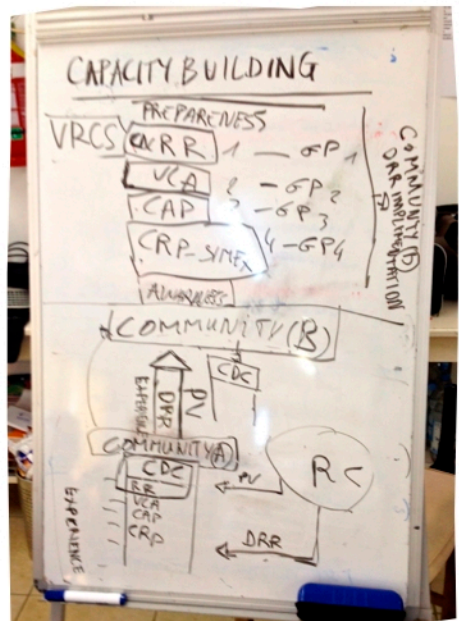 CAPACITY BUILDING
PREPARENESS
VRCS
CNRR 1 — GP1
VCA 2 - GP2
CAP 3 - GP3
CRP-SIMEX 4 - GP4
COMMUNITY (B)
DRR IMPLEMENTATION
AWARNESS
COMMUNITY (B)
CDC
EXPERIENCE
DRR
PV
COMMUNITY (A)
CDC
RR
VCA
CAP
CRP
EXPERIENCE
RC
PV
DRR